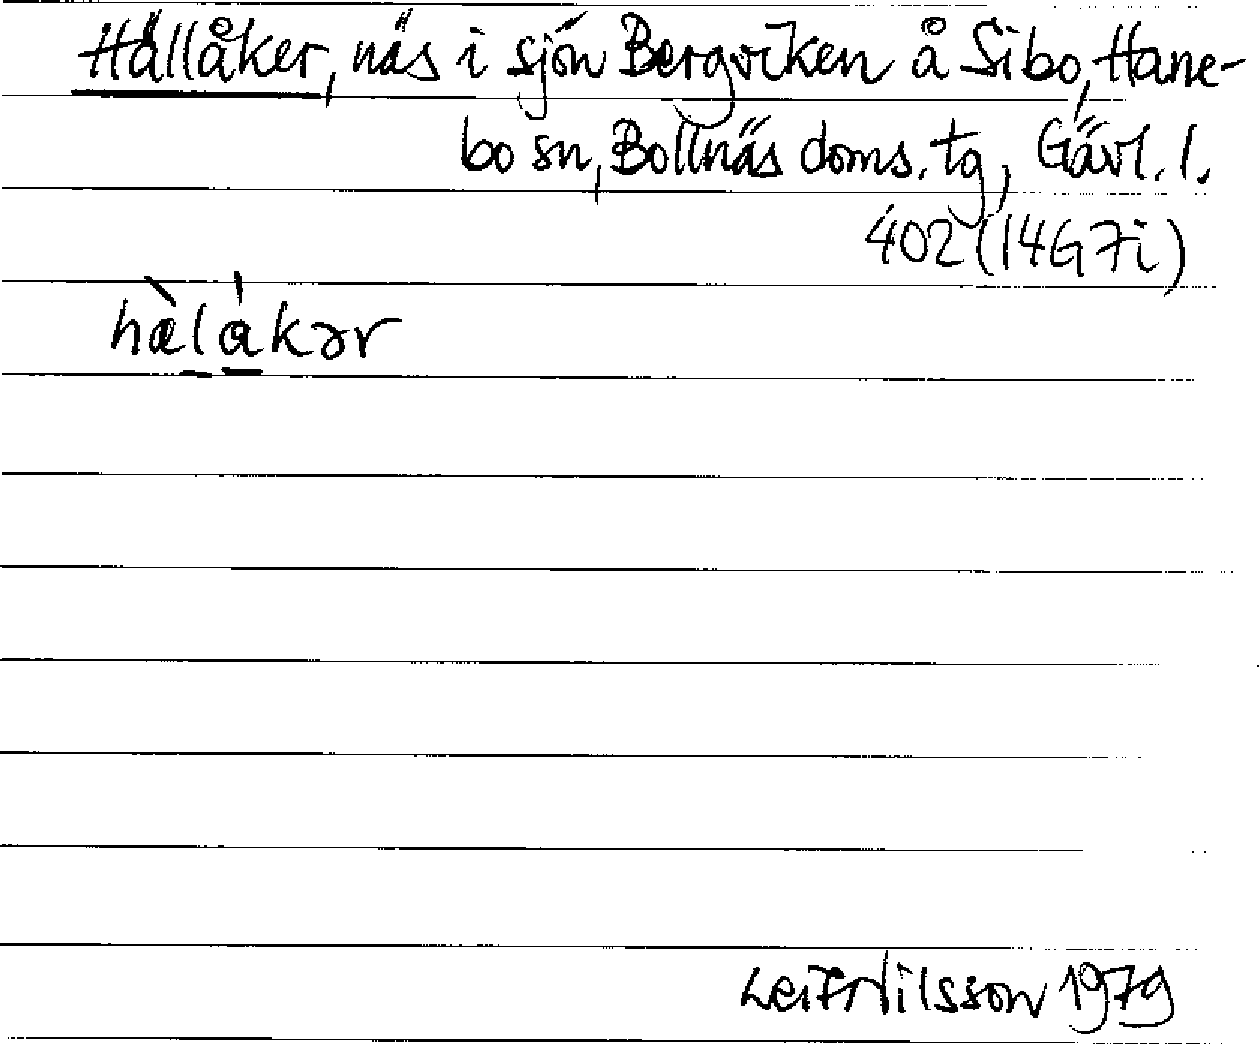 Hällåker, näs i sjön Bergviken å Sibo, Hane-
bo sn, Bollnäs doms. tg, Gävl. l.
402 (14G7i)
hæ̀lákər
Leif Nilsson 1979